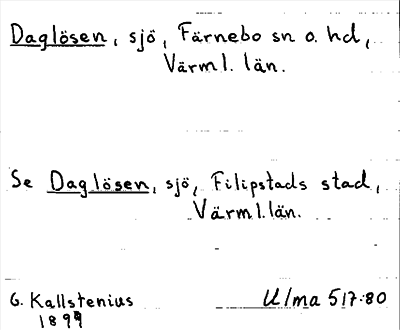 Daglösen, sjö, Färnebo sn o. hd,
Värml. län.
Se Daglösen, sjö, Filipstads stad,
Värml. län.
G. Kallstenius Ulma 517:80
1899